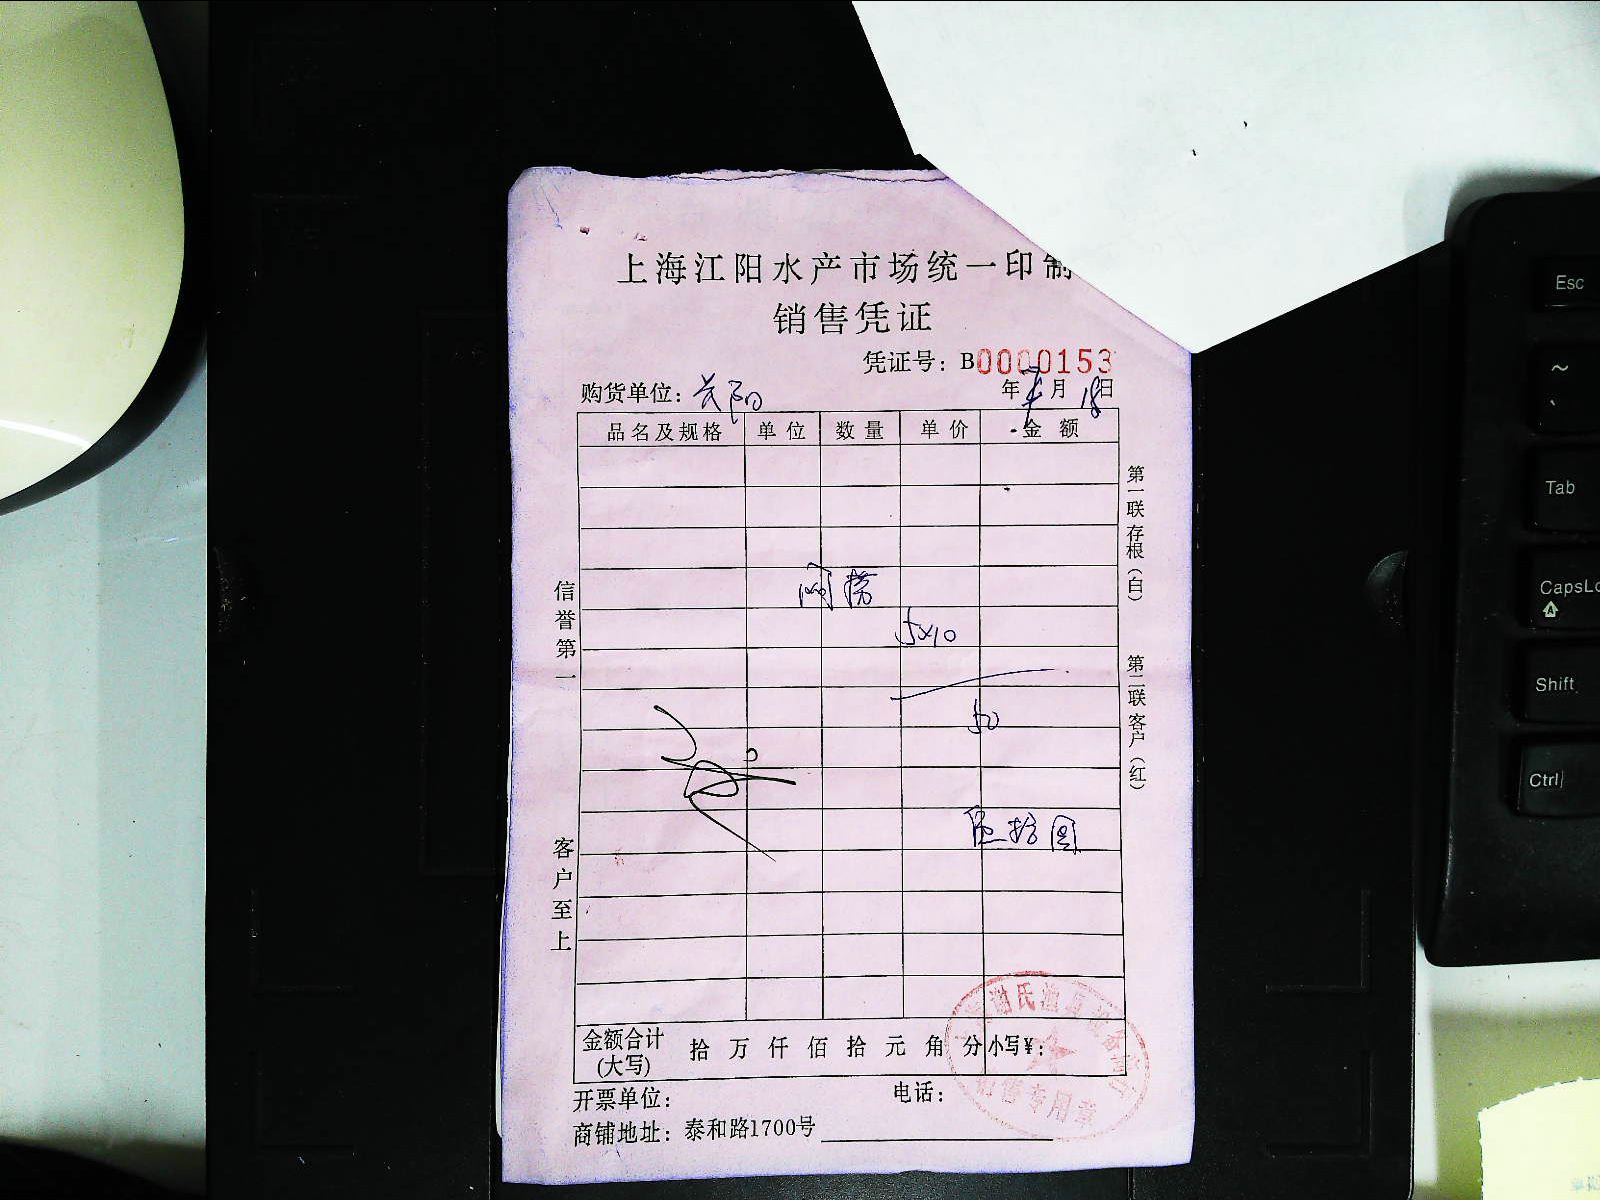 上海江阳水产市场统一印制
销售凭证
凭证号：B0000153
购货单位：长阳 年 月 18日
品名及规格 单位 数量 单价 金额
网捞
5×10
50
伍拾圆
金额合计(大写) 拾 万 仟 佰 拾 元 角 分 小写￥：
开票单位： 电话：
商铺地址：泰和路1700号
信誉第一
客户至上
第一联存根（白）
第二联客户（红）
销售专用章
Esc
~
Tab
CapsLo
A
Shift
Ctrl